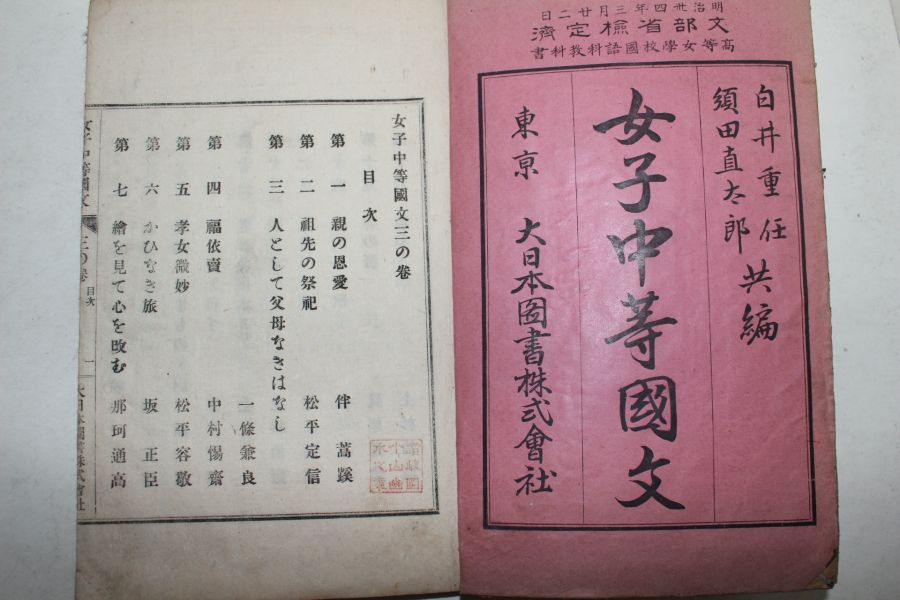 明治卅四年三月廿二日
文部省檢定濟
高等女學校國語科教科書
白井重任
須田直太郎
共編
女子中等國文
東京 大日本図書株式會社
女子中等國文三の卷
目次
第一 親の恩愛 伴蒿蹊
第二 祖先の祭祀 松平定信
第三 人として父母なきはなし
一條兼良
第四 福依賣 中村惕齋
第五 孝女微妙 松平容敬
第六 かひなき旅 坂正臣
第七 繪を見て心を改む 那珂通高
女子中等國文 三の卷 目次 一 大日本圖書株式會社